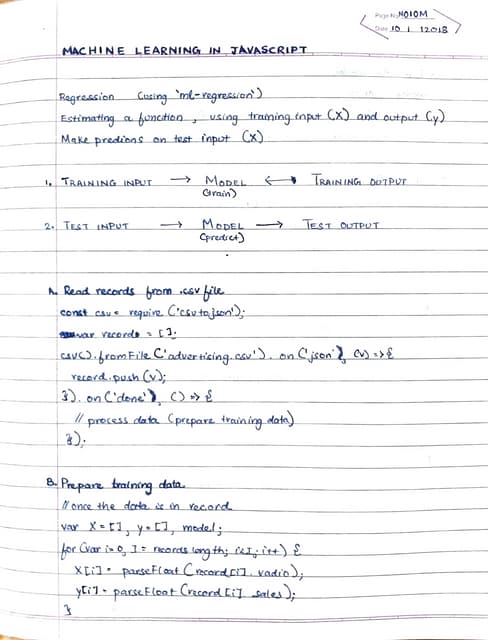 Page No. NO1OM
Date 10 1 12018
MACHINE LEARNING IN JAVASCRIPT
Regression (using 'ml-regression')
Estimating a function, using training input (X) and output (y)
Make predions on test input (X)
1. TRAINING INPUT → MODEL ↔ TRAINING OUTPUT
(train)
2. TEST INPUT → MODEL → TEST OUTPUT
(predict)
A. Read records from .csv file
const csv = require ('csvtojson');
var records = [];
csv().fromFile('advertising.csv').on('json'), (v) => {
record.push(v);
}).on('done'), () => {
// process data (prepare training data)
}).
B. Prepare training data
// once the data is in record
var X = [], y = [], model;
for (var i=0, I = records length; i<I; i++) {
X[i] = parseFloat (record[i]. radio);
y[i] = parseFloat (record[i] sales);
}